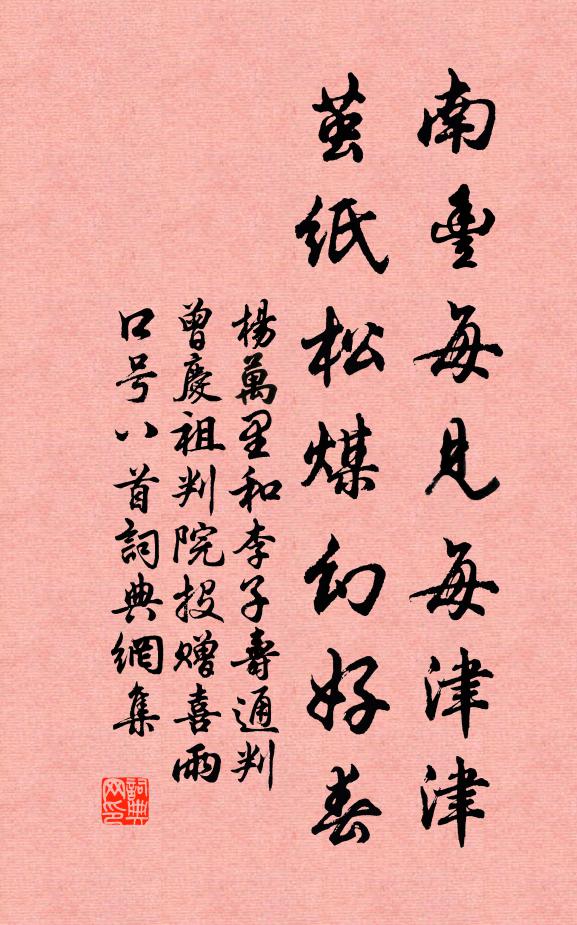 南豐每見每津津
茧紙松煤幻好春
楊萬里和李子壽通判
曾慶祖判院投赠喜雨
口号八首詞典網集
詞典网印